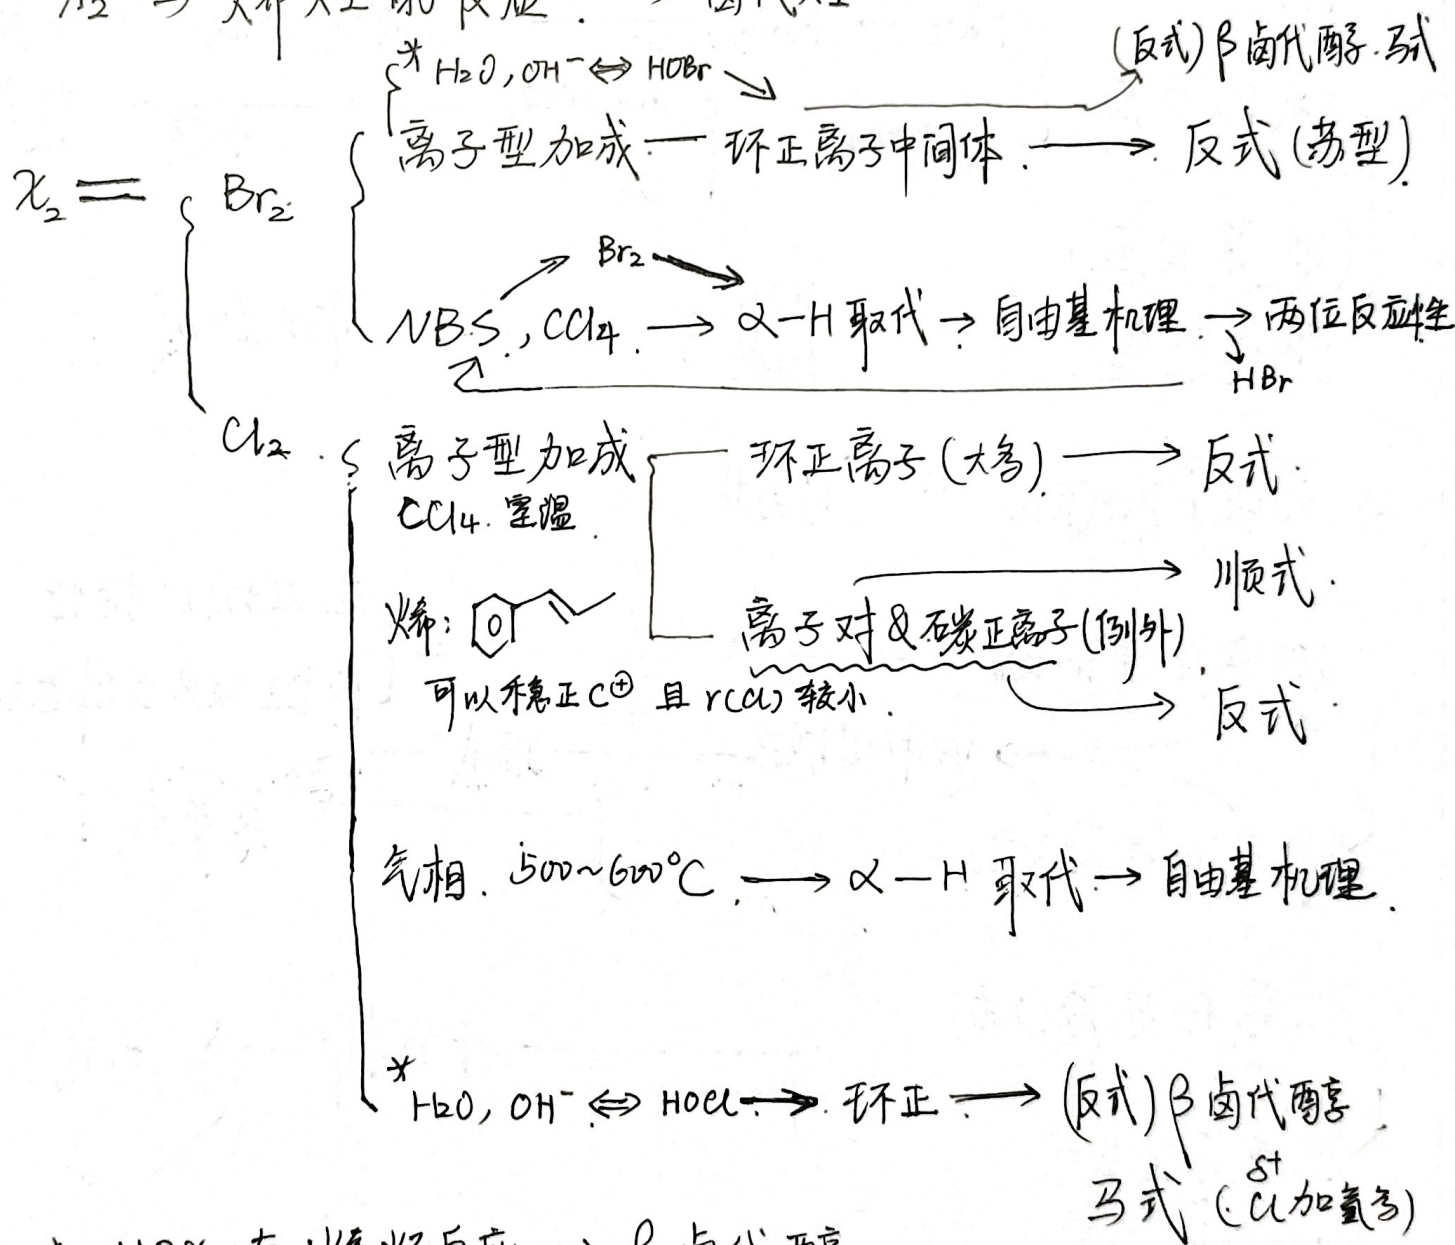 X₂ 与烯烃的反应. → 卤代烃
(反式) β 卤代醇. 马式
* H₂O, OH⁻ ⇔ HOBr ↘
离子型加成 — 环正离子中间体. → 反式 (苏型).
X₂ = Br₂
Br₂
NBS., CCl₄. → α-H 取代 → 自由基机理 → 两位反应性
HBr
Cl₂. 离子型加成 环正离子 (大多) → 反式.
CCl₄. 室温.
→ 顺式.
烯:
离子对 & 碳正离子 (例外).
可以稳正 C⊕ 且 r(Cl) 较小. → 反式.
气相. 500~600℃. → α-H 取代. → 自由基机理.
* H₂O, OH⁻ ⇔ HOCl. → 环正 → (反式) β 卤代醇.
δ+
马式 (Cl 加氢多)